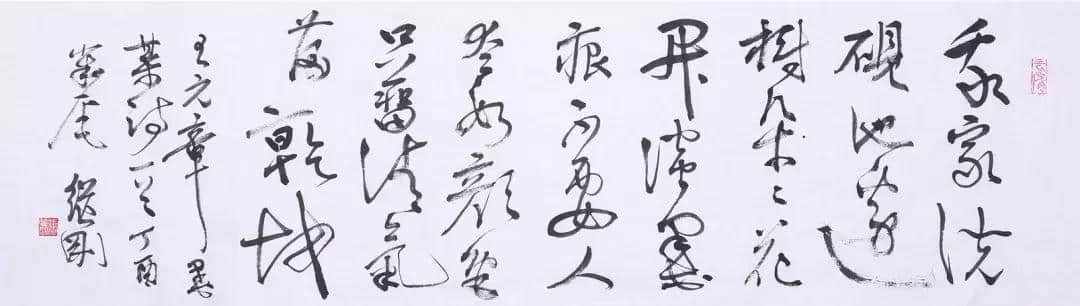 我家洗
硯池邊
樹朵々花
开淡墨
痕不要人
夸好顏色
只留清氣
滿乾坤
王元章墨
梅詩一首丁酉
繼剛